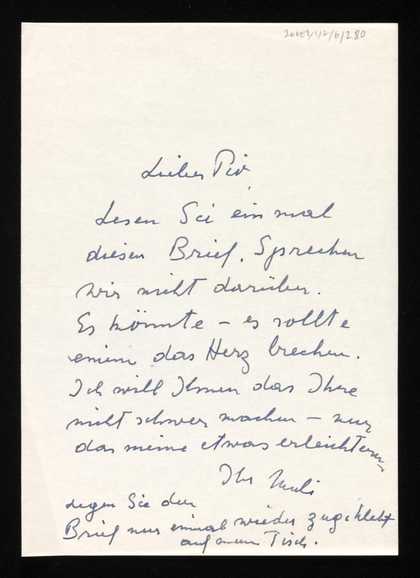 Lieber Piv,
Lesen Sie einmal
diesen Brief. Sprechen
wir nicht darüber.
Es könnte – es sollte
einem das Herz brechen.
Ich will Ihnen das Ihre
nicht schwer machen – nur
das meine etwas erleichtern
Ihr
Legen Sie den
Brief nur einmal wieder zugeklebt
auf meinen Tisch.